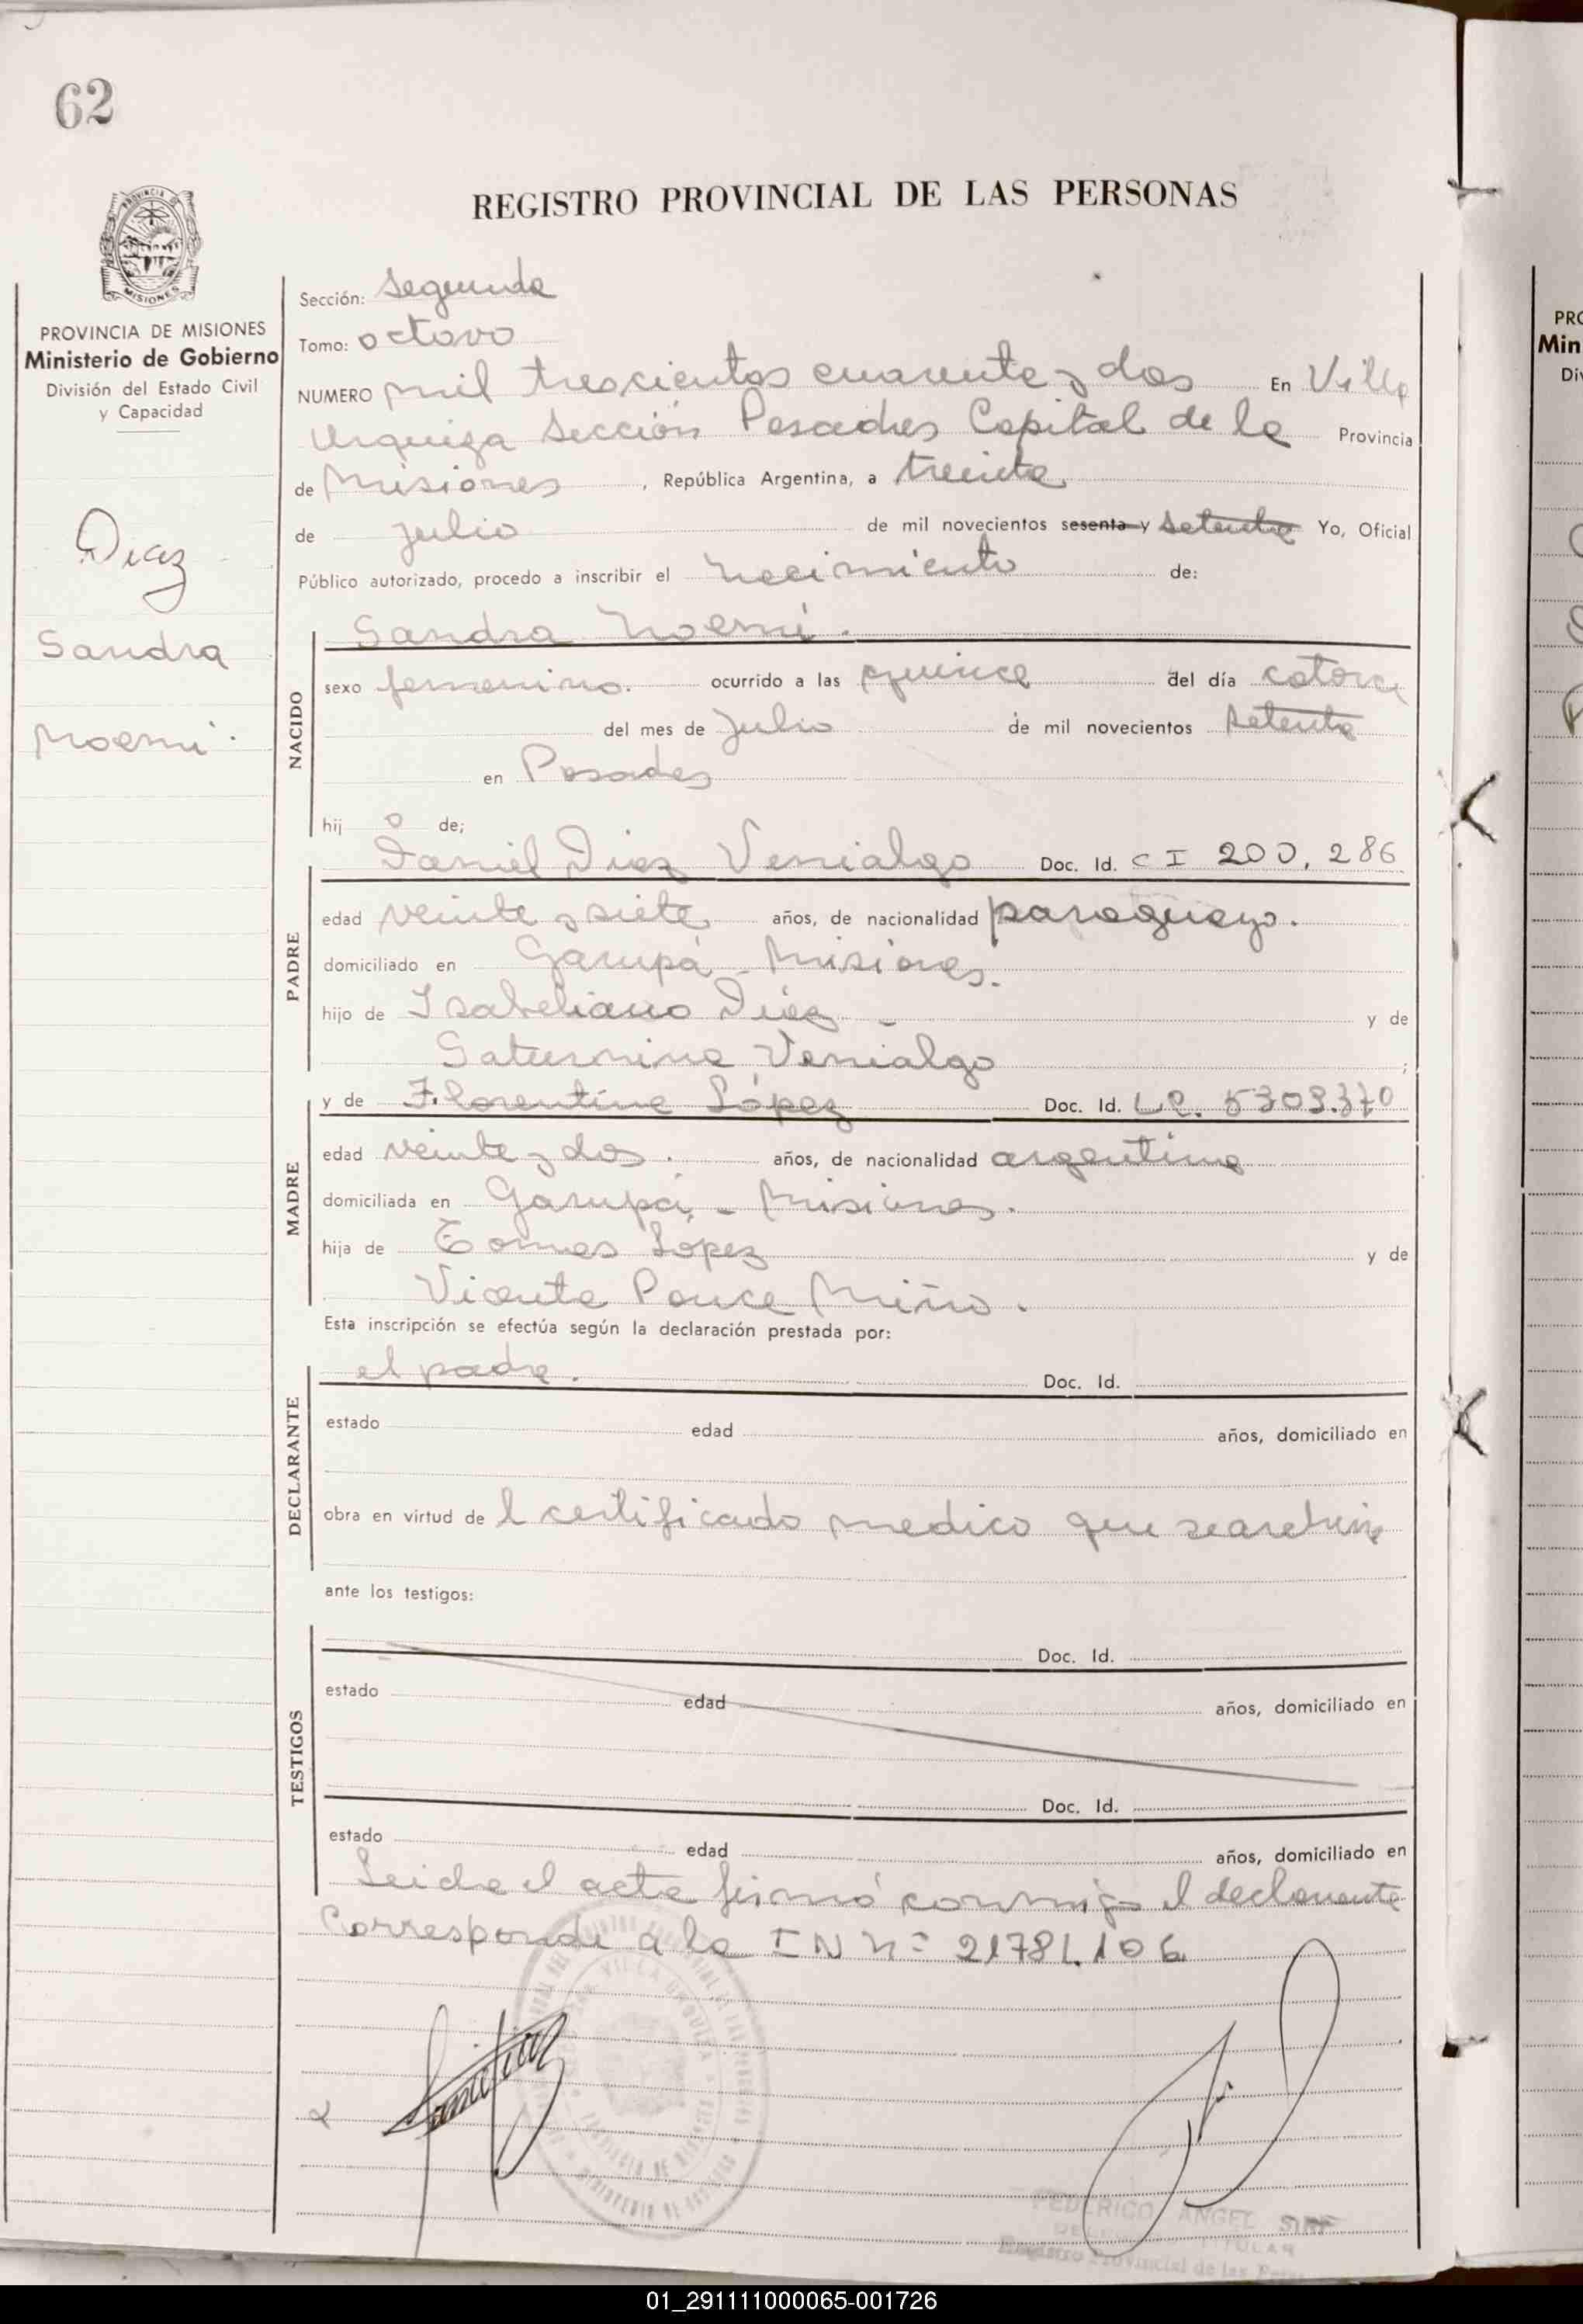 62
REGISTRO PROVINCIAL DE LAS PERSONAS
PROVINCIA DE MISIONES
Ministerio de Gobierno
División del Estado Civil
y Capacidad
Diaz
Sandra
Noemi.
Sección: Segunda
Tomo: octavo
NUMERO mil trescientos cuarenta y dos En Villa
Urquiza Sección Posadas Capital de la Provincia
de Misiones, República Argentina, a treinta
de julio de mil novecientos sesenta y setenta Yo, Oficial
Público autorizado, procedo a inscribir el nacimiento de:
Sandra Noemi.
NACIDO
sexo femenino. ocurrido a las quince del día catorce
del mes de Julio de mil novecientos setenta
en Posadas
hij a de;
Daniel Diaz Venialgo Doc. Id. C I 200.286
PADRE
edad veinte y siete años, de nacionalidad paraguayo.
domiciliado en Garupá - Misiones.
hijo de Isabeliano Diaz - y de
Saturnina Venialgo ;
y de Florentina López Doc. Id. LC. 5309.370
MADRE
edad veinte y dos. años, de nacionalidad argentina
domiciliada en Garupá - Misiones.
hija de Tomas López y de
Vicenta Ponce Miño.
Esta inscripción se efectúa según la declaración prestada por:
el padre. Doc. Id.
DECLARANTE
estado edad años, domiciliado en
obra en virtud de l certificado medico que se archiva
ante los testigos:
TESTIGOS
Doc. Id.
estado edad años, domiciliado en
Doc. Id.
estado edad años, domiciliado en
Leida el acta firmó conmigo el declarante
Corresponde a la I N Nº 21781.106
VILLA URQUIZA
FEDERICO ANGEL
TITULAR
Registro Provincial de las
PRO
Min
Di
01_291111000065-001726